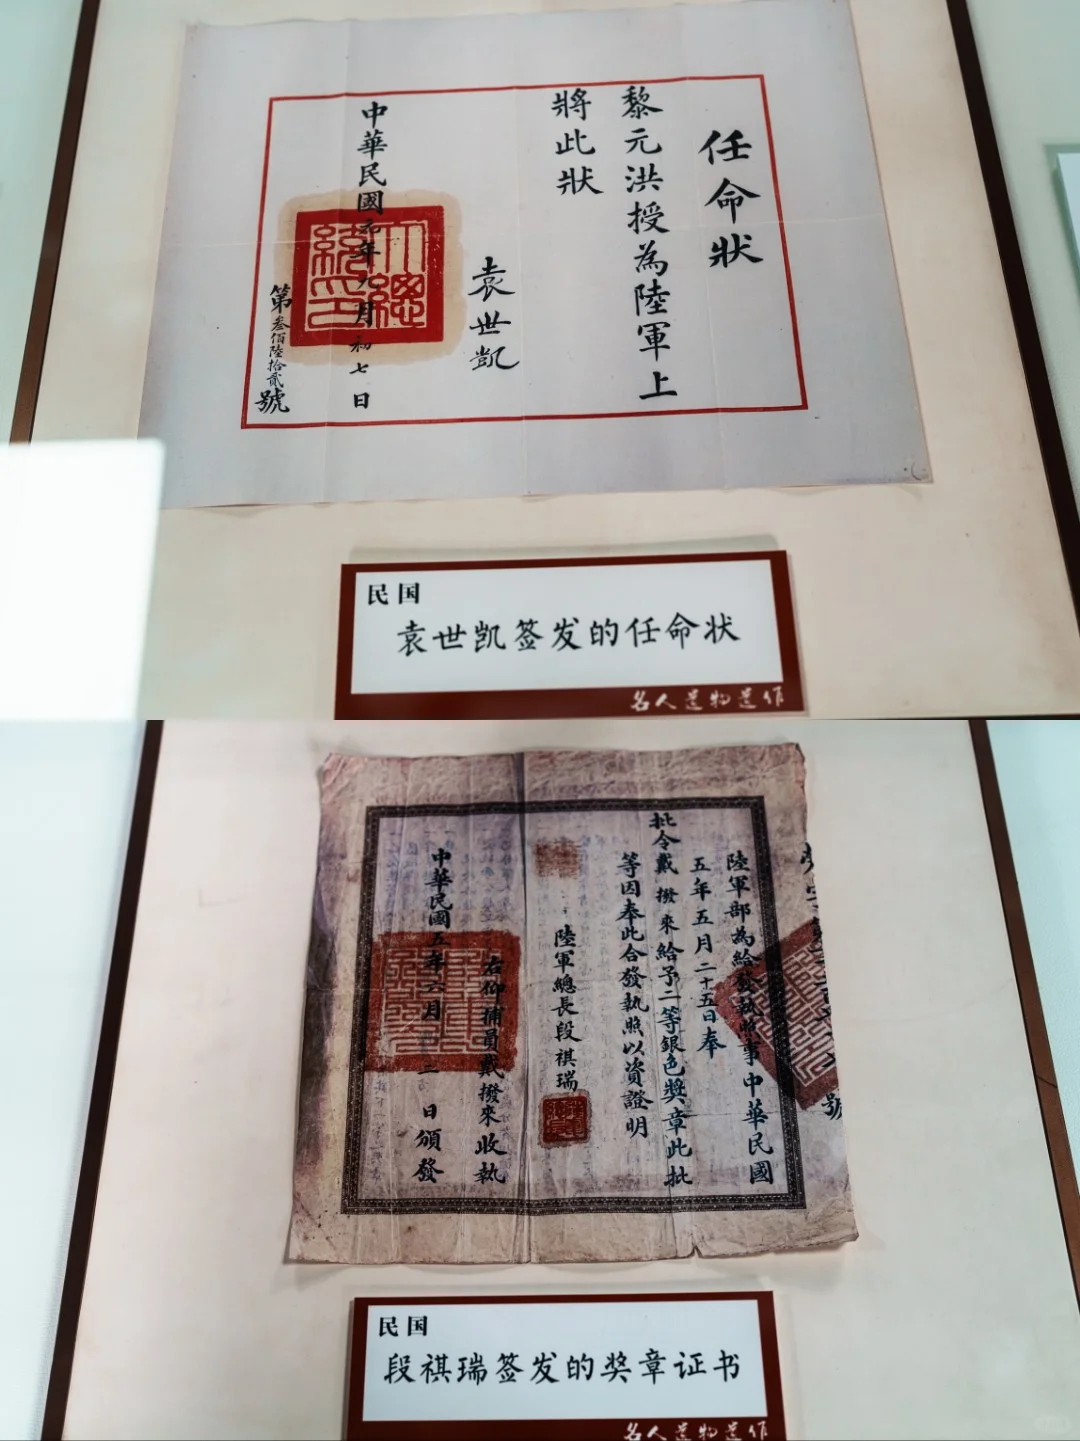 任命狀
黎元洪授為陸軍上
將此狀
袁世凱
大總統印
中華民國元年九月初七日
第叁佰陸拾貳號
民国
袁世凯签发的任命状
名人遗物遗作
號
陸軍部為給發執照事中華民國
五年五月二十五日奉
批令戴撥來給予二等銀色獎章此批
等因奉此合發執照以資證明
陸軍總長段祺瑞
右仰補員戴撥來收執
中華民國五年六月二日頒發
民国
段祺瑞签发的奖章证书
名人遗物遗作